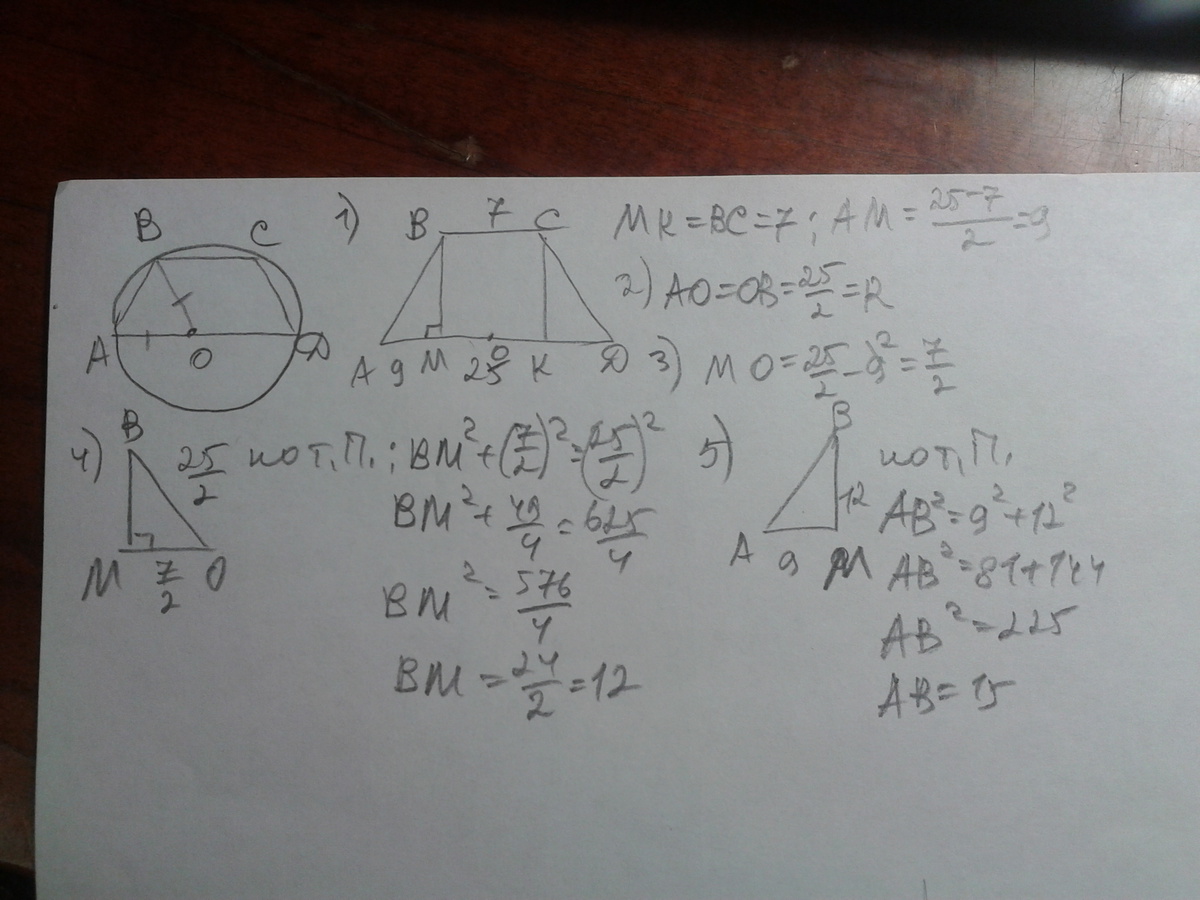 B C
A O D
1) B 7 C
A 9 M 25 O K D
MK = BC = 7; AM = \frac{25-7}{2} = 9
2) AO = OB = \frac{25}{2} = R
3) MO = \frac{25}{2} - 9^2 = \frac{7}{2}
4) B
\frac{25}{2}
M \frac{7}{2} O
по т. П.; BM^2 + (\frac{7}{2})^2 = (\frac{25}{2})^2
BM^2 + \frac{49}{4} = \frac{625}{4}
BM^2 = \frac{576}{4}
BM = \frac{24}{2} = 12
5) B
12
A 9 M
по т. П.
AB^2 = 9^2 + 12^2
AB^2 = 81 + 144
AB^2 = 225
AB = 15